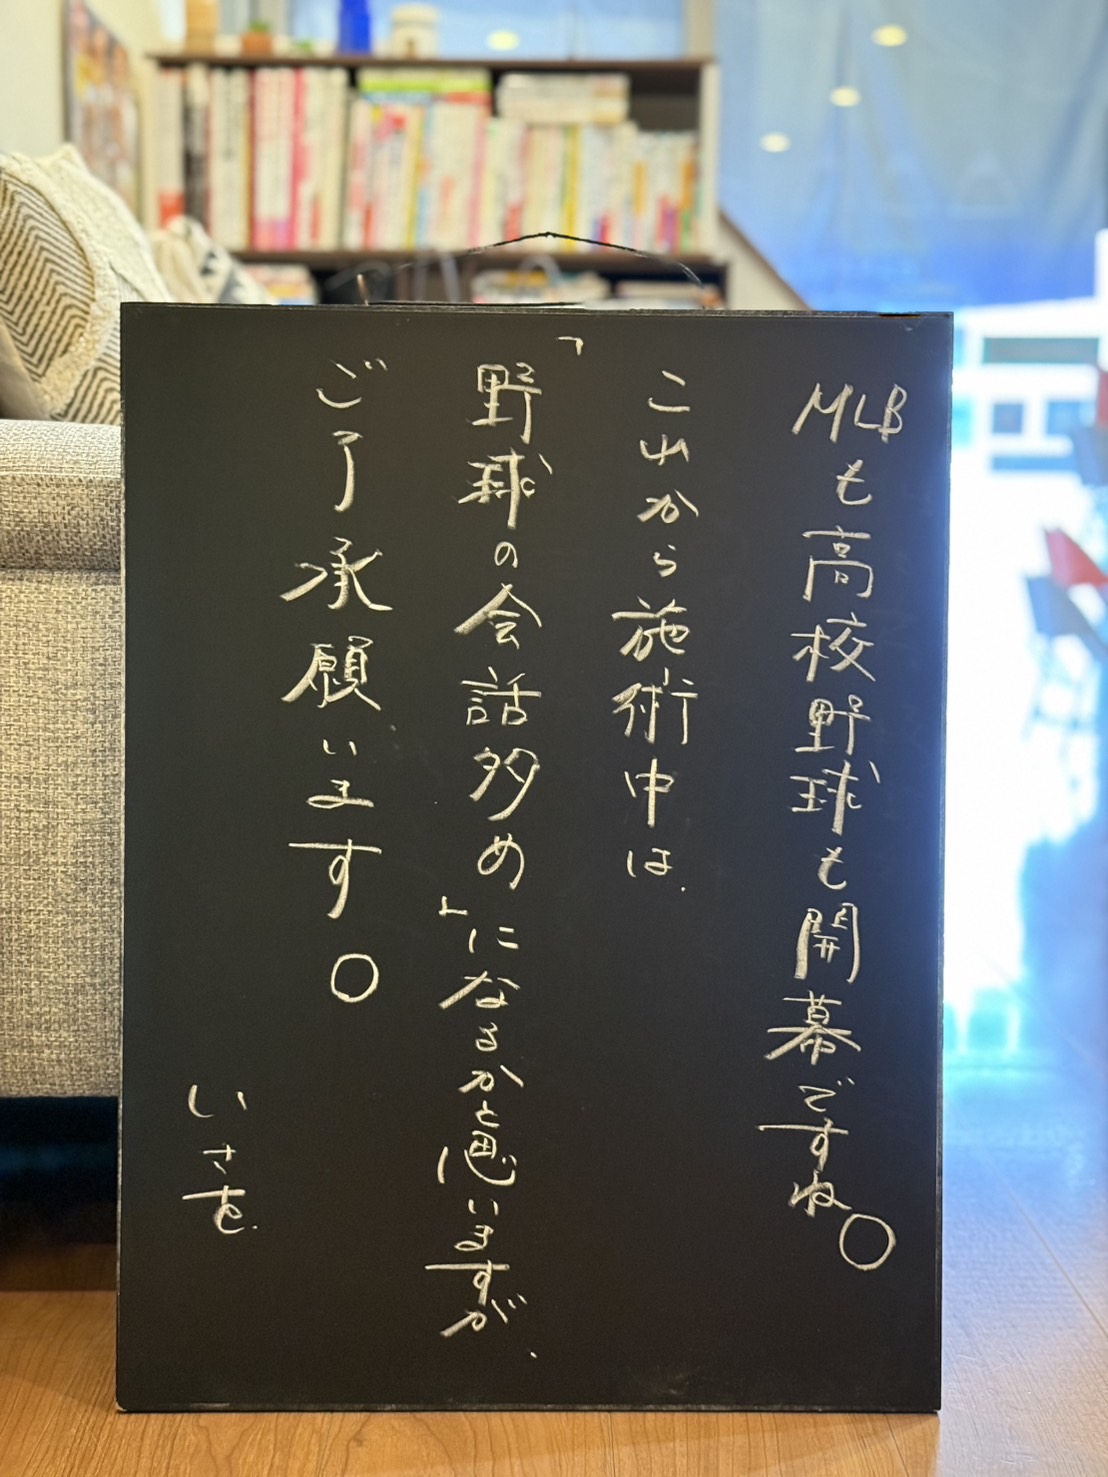 MLBも高校野球も開幕ですね。
これから施術中は、
「野球の会話多め」になるかと思いますが、
ご了承願います。
いさを